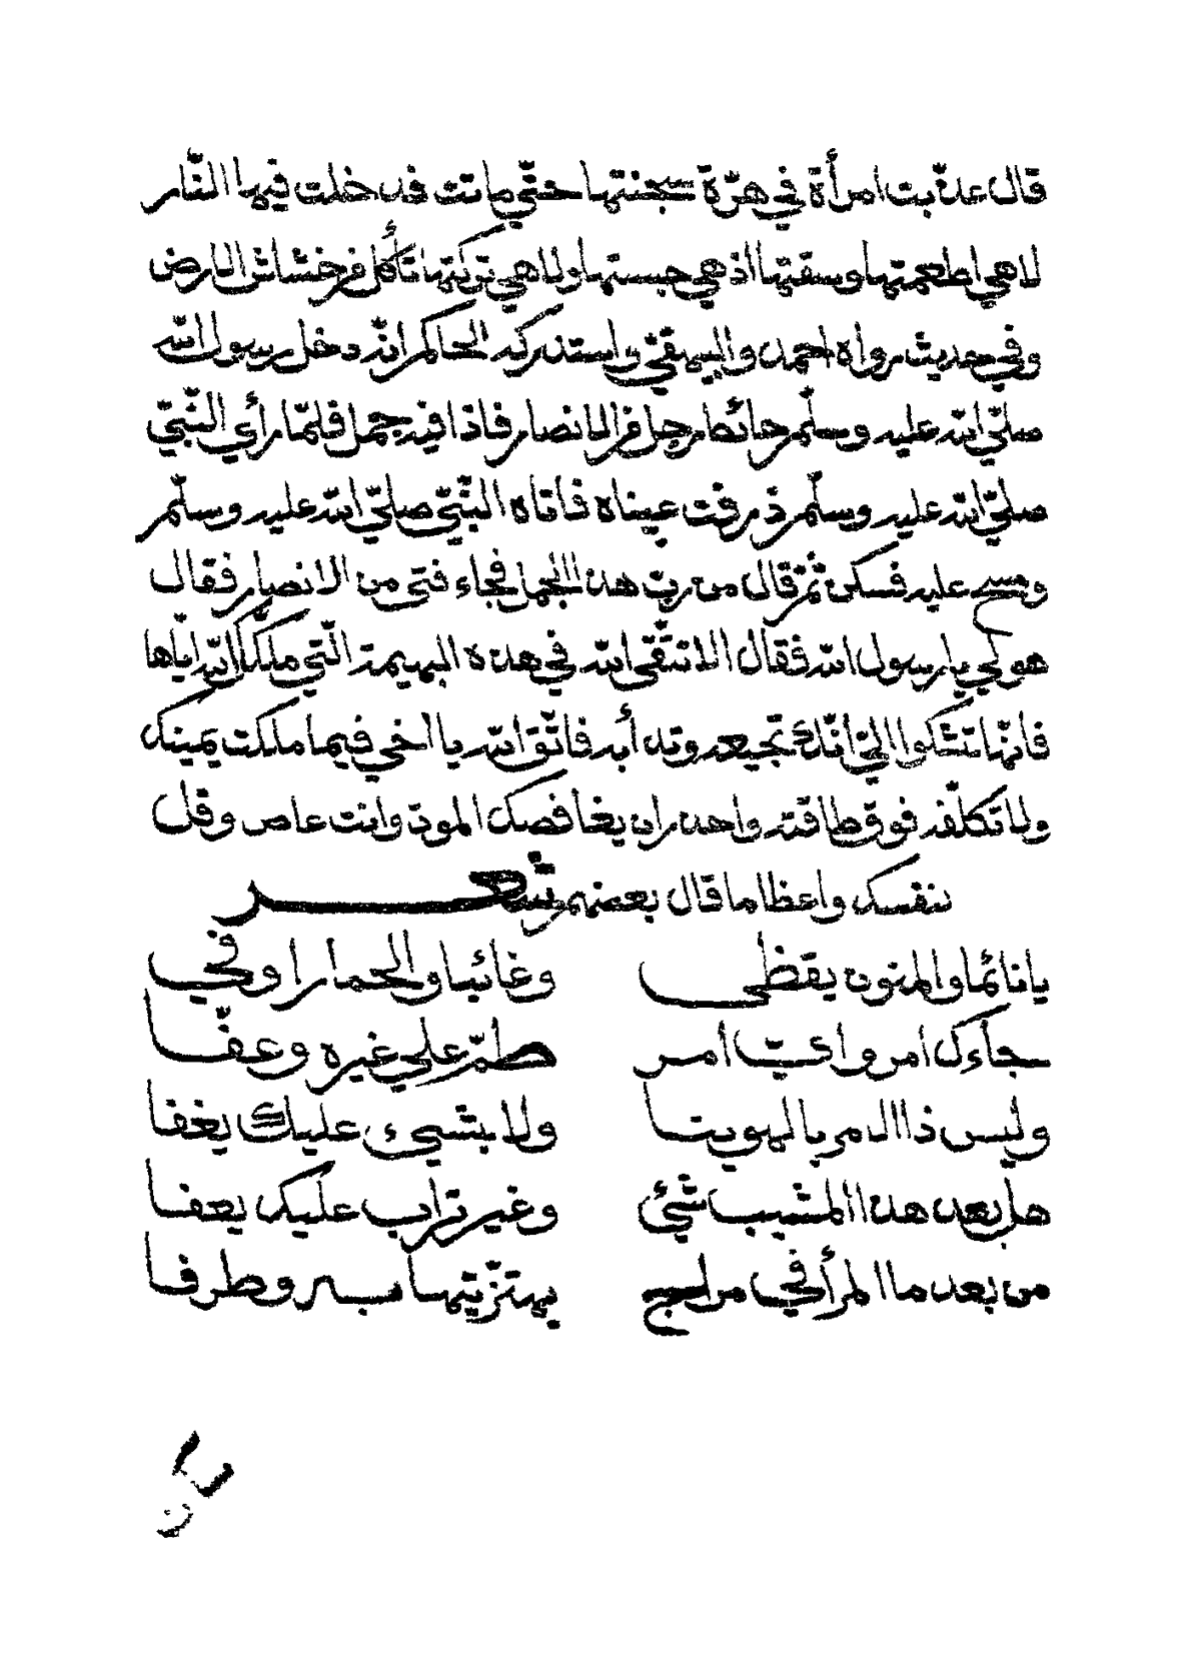 قال عذّبت امرأة في هرّة سجنتها حتّي ماتت فدخلت فيها النّار
لا هي اطعمتها وسقتها اذ هي حبستها ولا هي تركتها تأكل من خشاش الارض
وفي حديث رواه احمد والبيهقيّ واستدركه الحاكم انّه دخل رسول الله
صلّي الله عليه وسلّم حائط رجل من الانصار فاذا فيه جمل فلمّا رأي النّبيّ
صلّي الله عليه وسلّم ذرفت عيناه فاتاه النّبيّ صلّي الله عليه وسلّم
ومسح عليه فسكن ثمّ قال من ربّ هذا الجمل فجاء فتي من الانصار فقال
هو لي يا رسول الله فقال الا تتّقي الله في هذه البهيمة الّتي ملّكك الله ايّاها
فانّها تشكوا اليّ انّك تجيعه وتدأبه فاتّق الله يا اخي فيما ملكت يمينك
ولا تكلّفه فوق طاقته واحذر ان يغافصك الموت وانت عاص وقل
لنفسك واعظا ما قال بعضهم شعر
يا نائما والمنون يقظي وغائبا والحمار اوفي
جاءك امر وايّ امر طمّ علي غيره وعفّا
وليس ذا الامر بالهوينا ولا بشيء عليك يخفا
هل بعد هذا المشيب شيء وغير تراب عليك يعفا
من بعد ما المرأ في مراح يهتزّ تيها به وطرفا